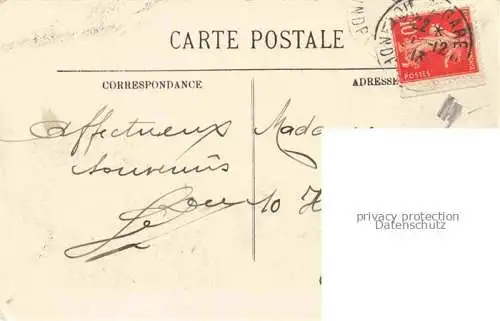 CARTE POSTALE
CORRESPONDANCE
ADRESSE
POSTES
10
GARE
22 *
12
13
affectueux
souvenirs
Mada
10 H
privacy protection
Datenschutz